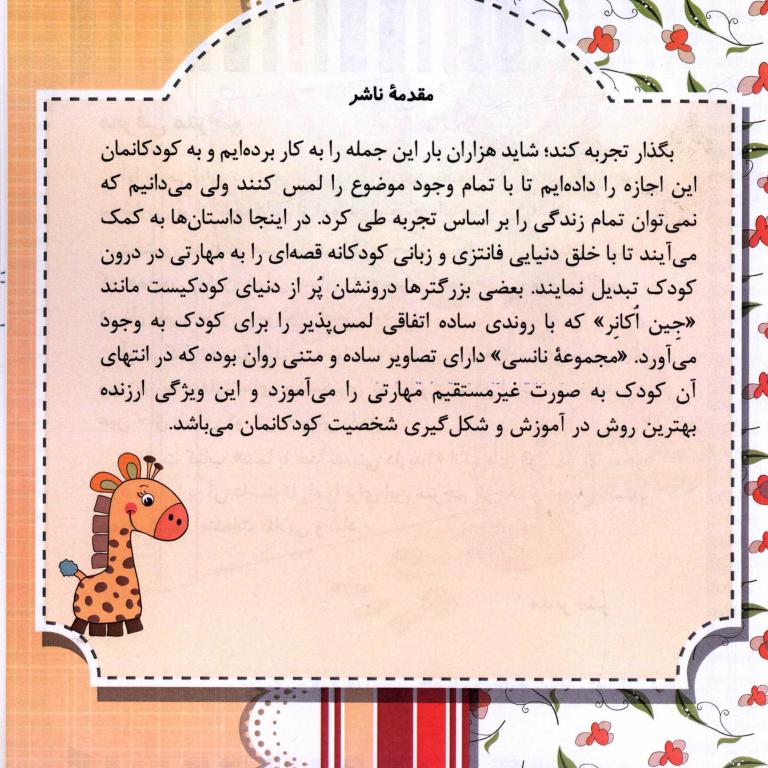 مقدمهٔ ناشر
بگذار تجربه کند؛ شاید هزاران بار این جمله را به کار برده‌ایم و به کودکانمان
این اجازه را داده‌ایم تا با تمام وجود موضوع را لمس کنند ولی می‌دانیم که
نمی‌توان تمام زندگی را بر اساس تجربه طی کرد. در اینجا داستان‌ها به کمک
می‌آیند تا با خلق دنیایی فانتزی و زبانی کودکانه قصه‌ای را به مهارتی در درون
کودک تبدیل نمایند. بعضی بزرگترها درونشان پُر از دنیای کودکیست مانند
«جِین اُکانِر» که با روندی ساده اتفاقی لمس‌پذیر را برای کودک به وجود
می‌آورد. «مجموعهٔ نانسی» دارای تصاویر ساده و متنی روان بوده که در انتهای
آن کودک به صورت غیرمستقیم مهارتی را می‌آموزد و این ویژگی ارزنده
بهترین روش در آموزش و شکل‌گیری شخصیت کودکانمان می‌باشد.